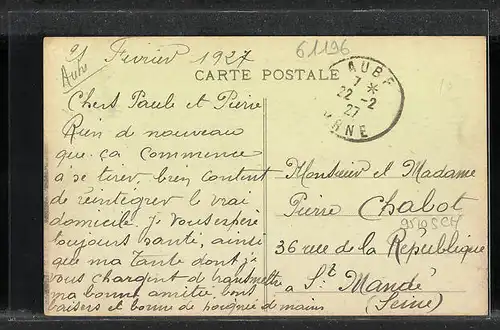 21 Février 1927
61196
Aube
CARTE POSTALE
AUBE
7 *
22 - 2
27
ORNE
Chers Paule et Pierre
Rien de nouveau
que ça commence
à se tirer, bien content
de réintégrer le vrai
domicile. Je vous espère
toujours santé, ainsi
que ma Tante dont je
vous chargent de transmettre
ma bonne amitié, bons
baisers et bonne de poignée de mains
Monsieur et Madame
Pierre Chabot
36 rue de la République
à St Mandé
(Seine)